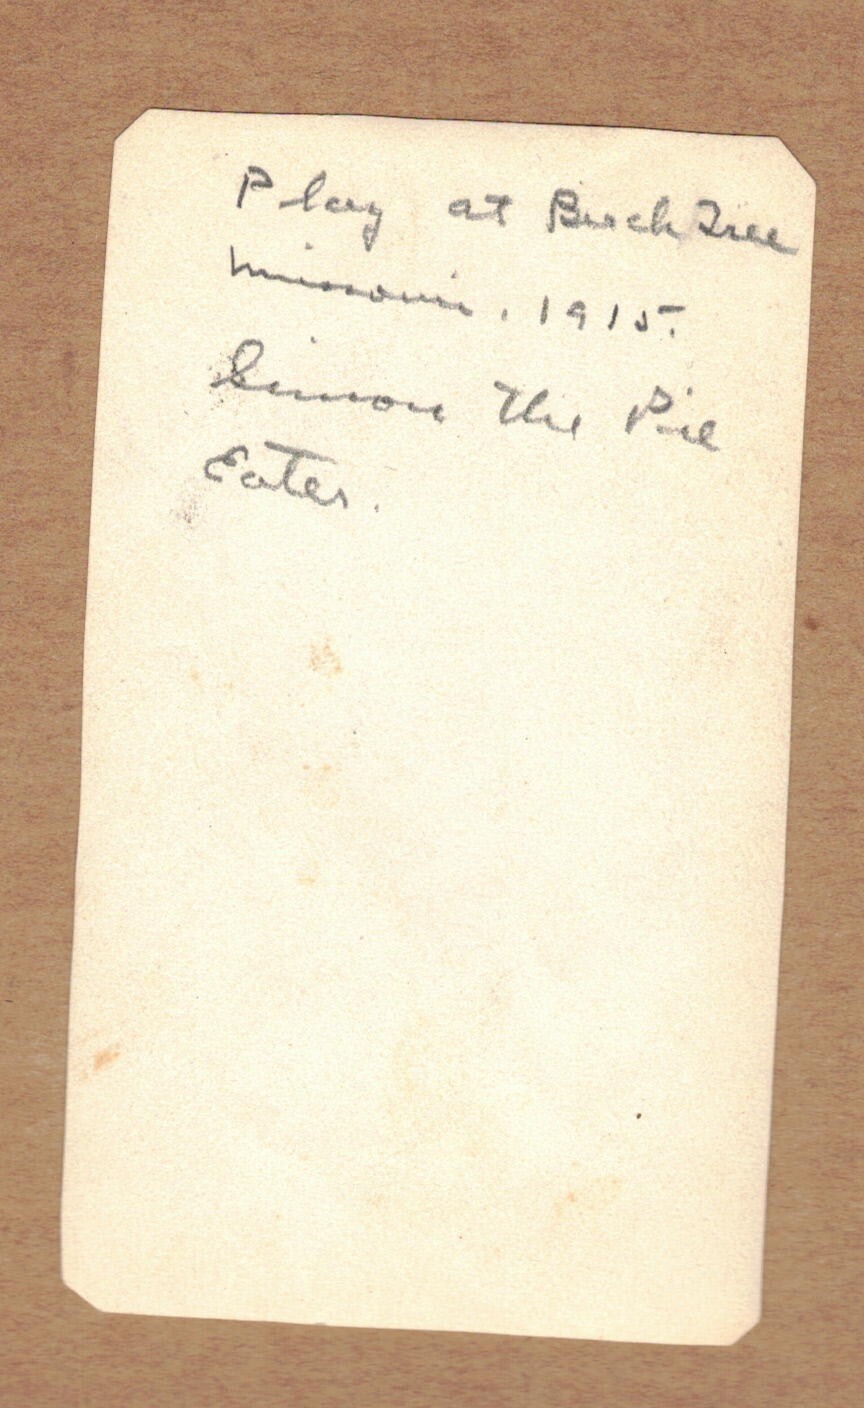 Play at Birch Tree
Missouri, 1915.
Simon The Pie
Eater.